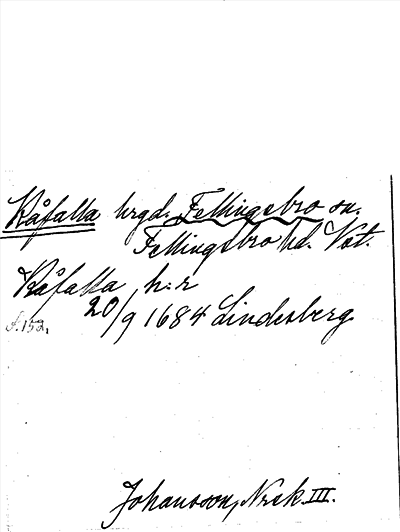 Råfalla hrgd. Fellingsbro sn.
Fellingsbro hd. Vst.
Råfalla h:r
20/9 1684 Lindesberg
s. 152.
Johansson, Nrek III.